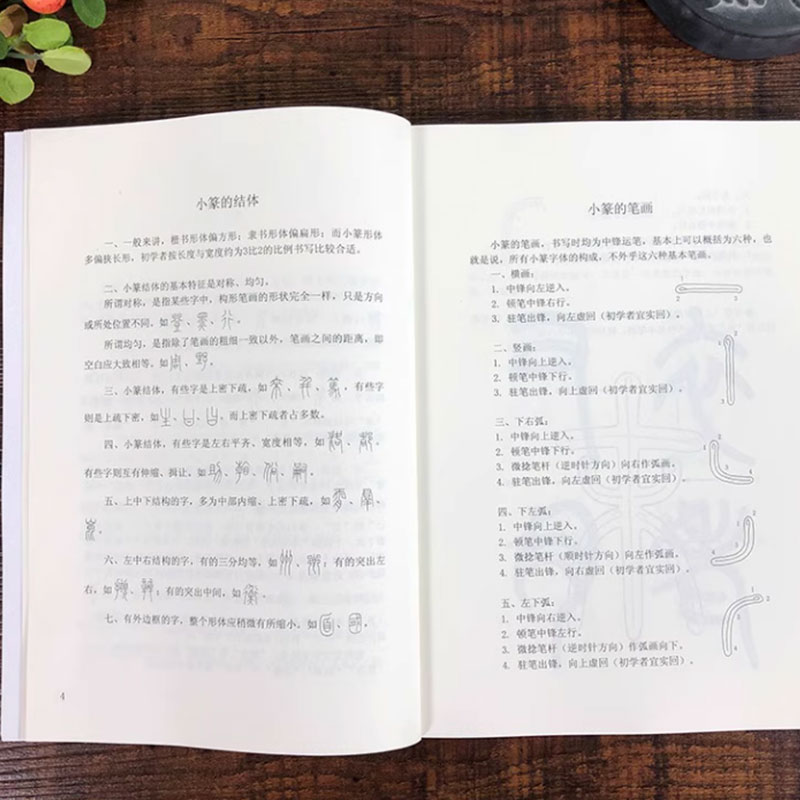 小篆的结体
一、一般来讲，楷书形体偏方形；隶书形体偏扁形；而小篆形体
多偏狭长形，初学者按长度与宽度约为3比2的比例书写比较合适。
二、小篆结体的基本特征是对称、均匀。
所谓对称，是指某些字中，构形笔画的形状完全一样，只是方向
或所处位置不同。如
所谓均匀，是指除了笔画的粗细一致以外，笔画之间的距离，即
空白应大致相等。如
三、小篆结体，有些字是上密下疏，如 有些字
则是上疏下密，如 而上密下疏者占多数。
四、小篆结体，有些字是左右平齐、宽度相等，如
有些字则互有伸缩、揖让，如
五、上中下结构的字，多为中部内缩、上密下疏，如
六、左中右结构的字，有的三分均等，如 有的突出左
右，如 有的突出中间，如
七、有外边框的字，整个形体应稍微有所缩小，如
4
小篆的笔画
小篆的笔画，书写时均为中锋运笔，基本上可以概括为六种，也
就是说，所有小篆字体的构成，不外乎这六种基本笔画。
一、横画：
1. 中锋向左逆入。
2. 顿笔中锋右行。
3. 驻笔出锋，向左虚回（初学者宜实回）。
1
2
3
二、竖画：
1. 中锋向上逆入。
2. 顿笔中锋下行。
3. 驻笔出锋，向上虚回（初学者宜实回）。
1
2
3
三、下右弧：
1. 中锋向上逆入。
2. 顿笔中锋下行。
3. 微捻笔杆（逆时针方向）向右作弧画。
4. 驻笔出锋，向左虚回（初学者宜实回）。
1
2
3
4
四、下左弧：
1. 中锋向上逆入。
2. 顿笔中锋下行。
3. 微捻笔杆（顺时针方向）向左作弧画。
4. 驻笔出锋，向右虚回（初学者宜实回）。
1
2
3
4
五、左下弧：
1. 中锋向右逆入。
2. 顿笔中锋左行。
3. 微捻笔杆（逆时针方向）作弧画向下。
4. 驻笔出锋，向上虚回（初学者宜实回）。
1
2
3
4